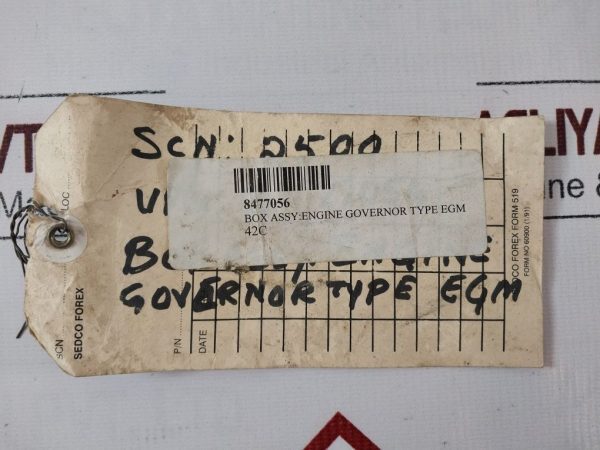 SCN: 2500
8477056
BOX ASSY:ENGINE GOVERNOR TYPE EGM
42C
GOVERNOR TYPE EGM
SCN
SEDCO FOREX
LOC.
P/N
DATE
SEDCO FOREX FORM 519
FORM NO 60900 (1/91)